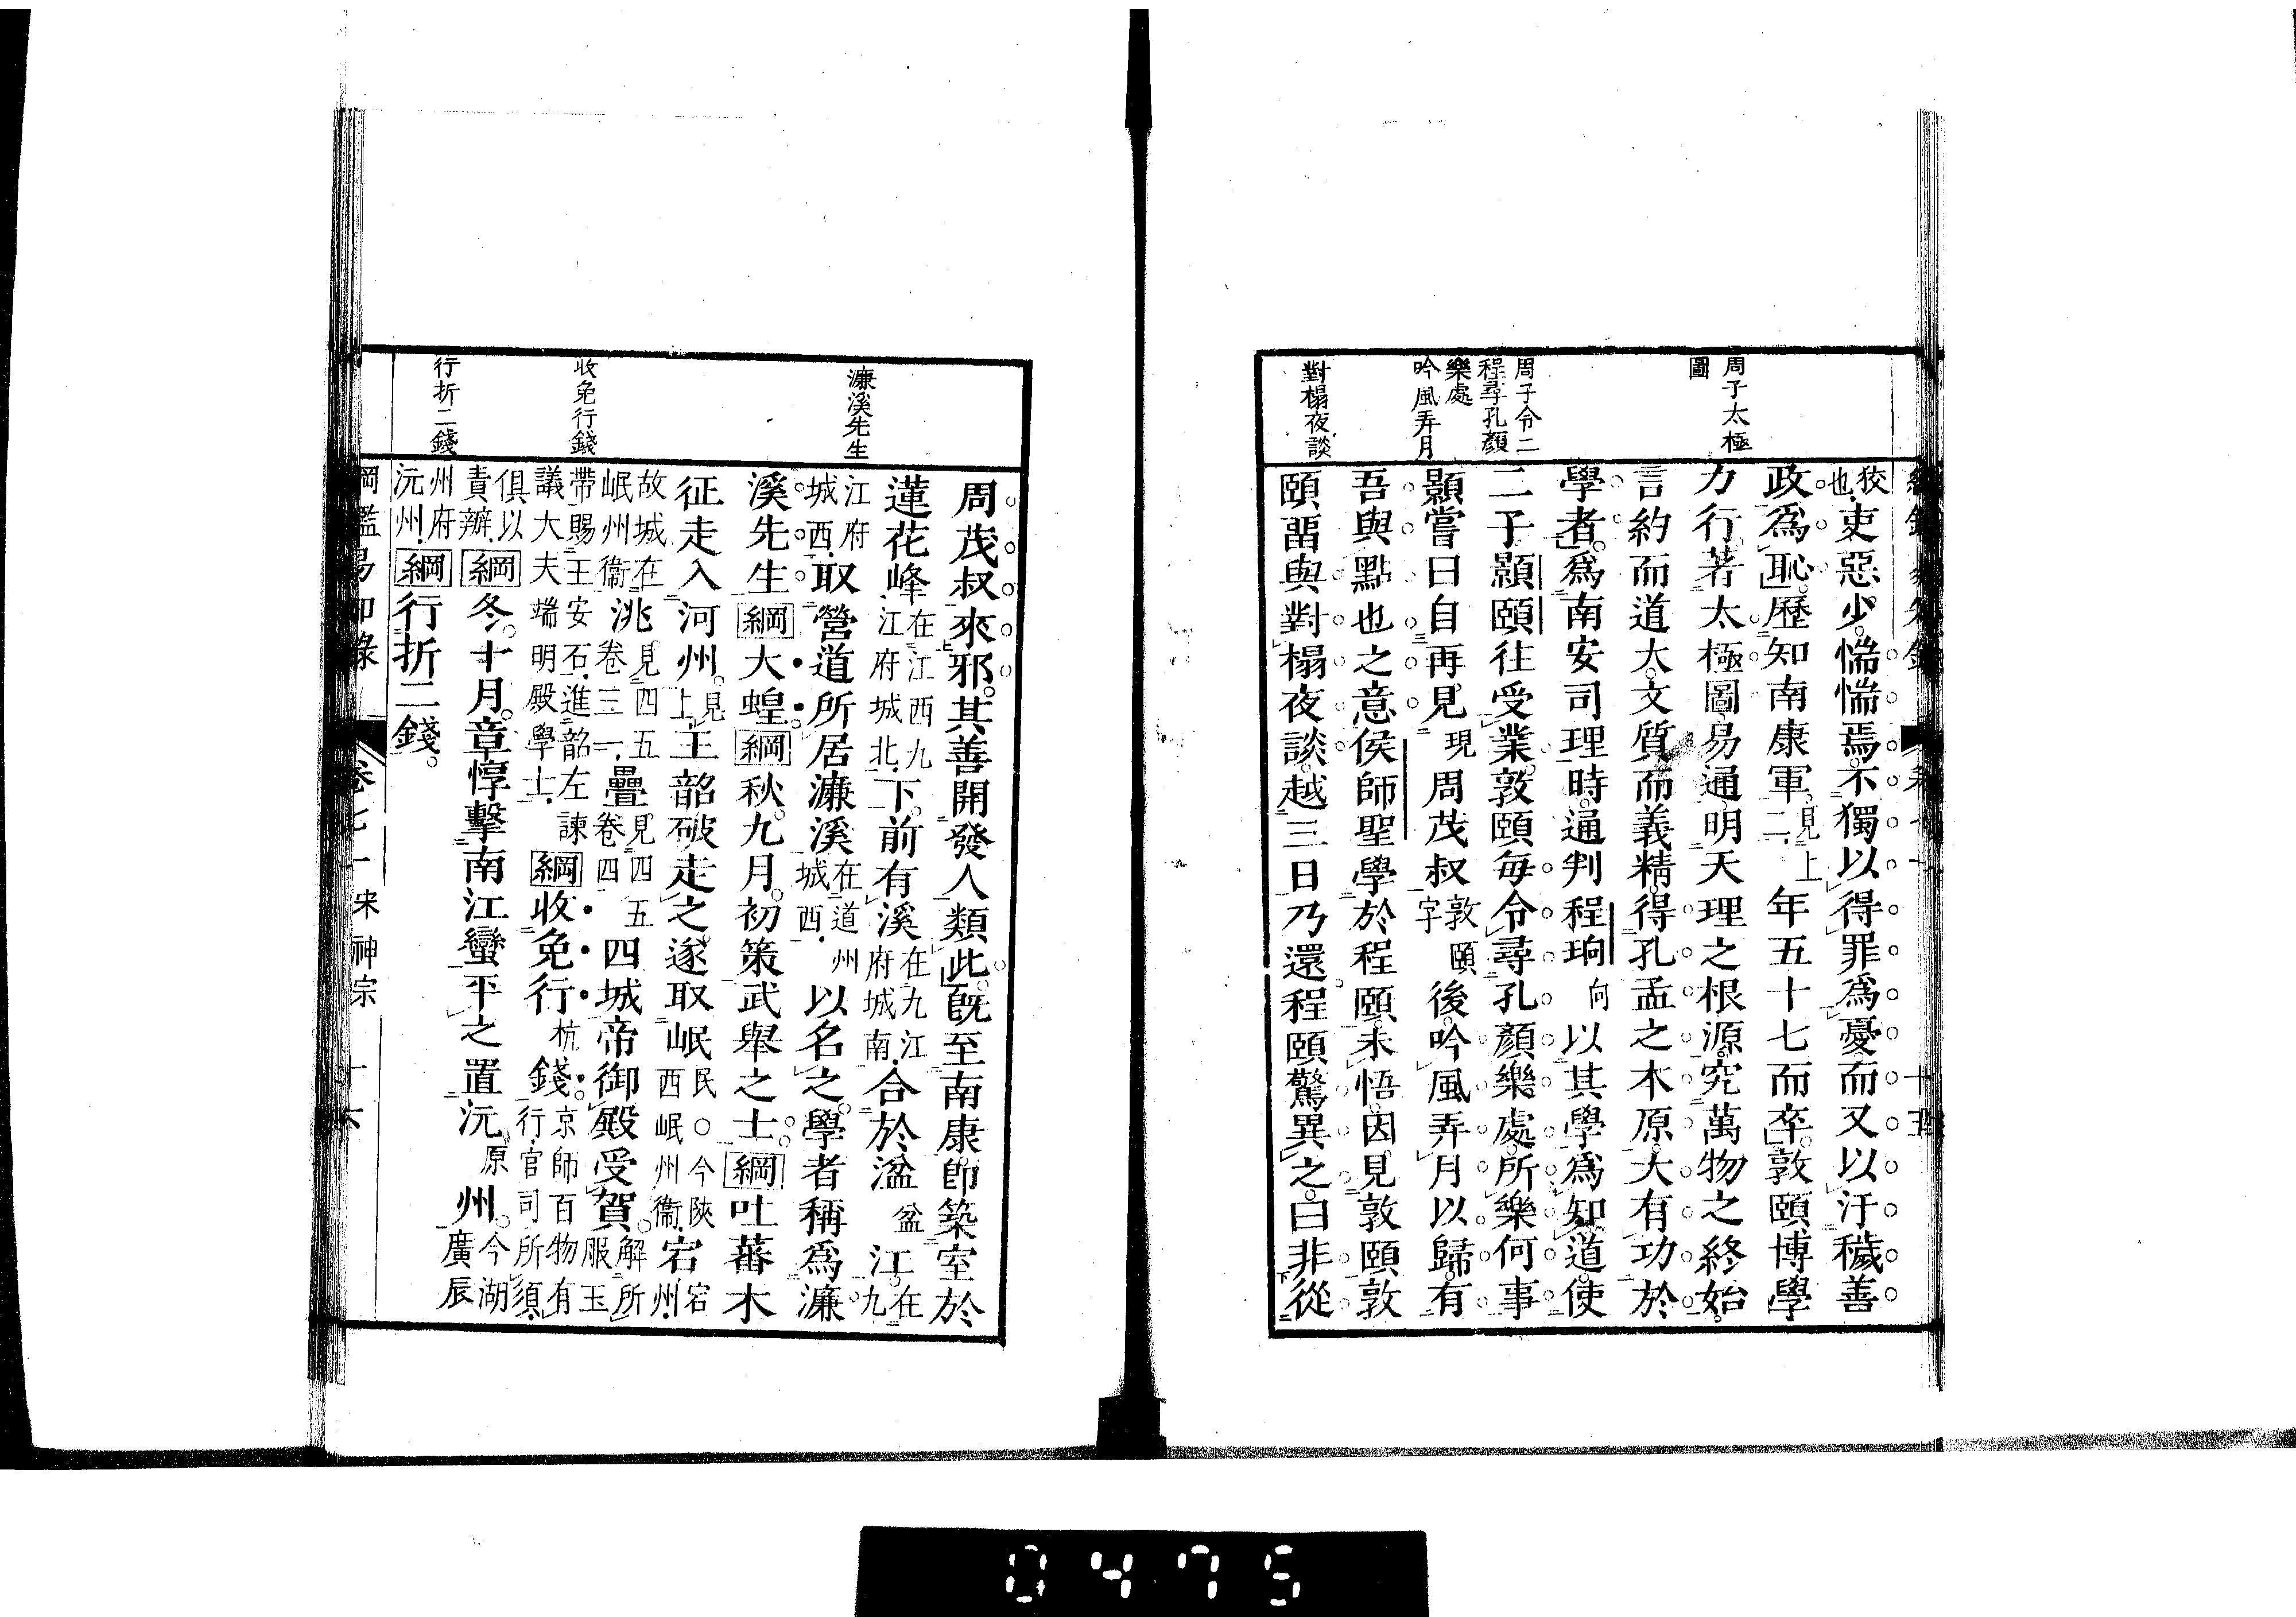 周子太極
圖
周子令二
程尋孔顏
樂處
吟風弄月
對榻夜談
狡也.吏惡少.惴惴焉.不獨以得罪爲憂.而又以汙穢善
政爲恥.歷知南康軍.見上二.年五十七而卒.敦頤博學
力行.著太極圖易通.明天理之根源.究萬物之終始.
言約而道大.文質而義精.得孔孟之本原.大有功於
學者.爲南安司理時.通判程珦向以其學爲知道.使
二子顥頤往受業.敦頤每令尋孔顏樂處.所樂何事
顥嘗曰自再見現周茂叔敦頤字後.吟風弄月以歸.有
吾與點也之意.侯師聖學於程頤.未悟.因見敦頤.敦
頤畱與對榻夜談.越三日乃還.程頤驚異之.曰非從
濂溪先生
收免行錢
行折二錢
周茂叔來邪.其善開發人類此.旣至南康.卽築室於
蓮花峰在江西九江府城北.下.前有溪在九江府城南.合於湓盆江.在九
江府城西.取營道所居濂溪在道州城西.以名之.學者稱爲濂
溪先生綱大蝗綱秋.九月.初策武舉之士綱吐蕃木
征走入河州.見上王韶破走之.遂取岷民○今陝西岷州衞.宕宕州.
故城在岷州衞洮.見四五卷三一.疊見四五卷四四城.帝御殿受賀.解所服玉
帶賜王安石.進韶左諫議大夫端明殿學士.綱收免行杭錢.京師百物有行.官司所須.
俱以責辦.綱冬.十月.章惇擊南江蠻平之.置沅原州.今湖廣辰
州府沅州.綱行折二錢.
綱鑑易知錄 卷七一 宋神宗 十六